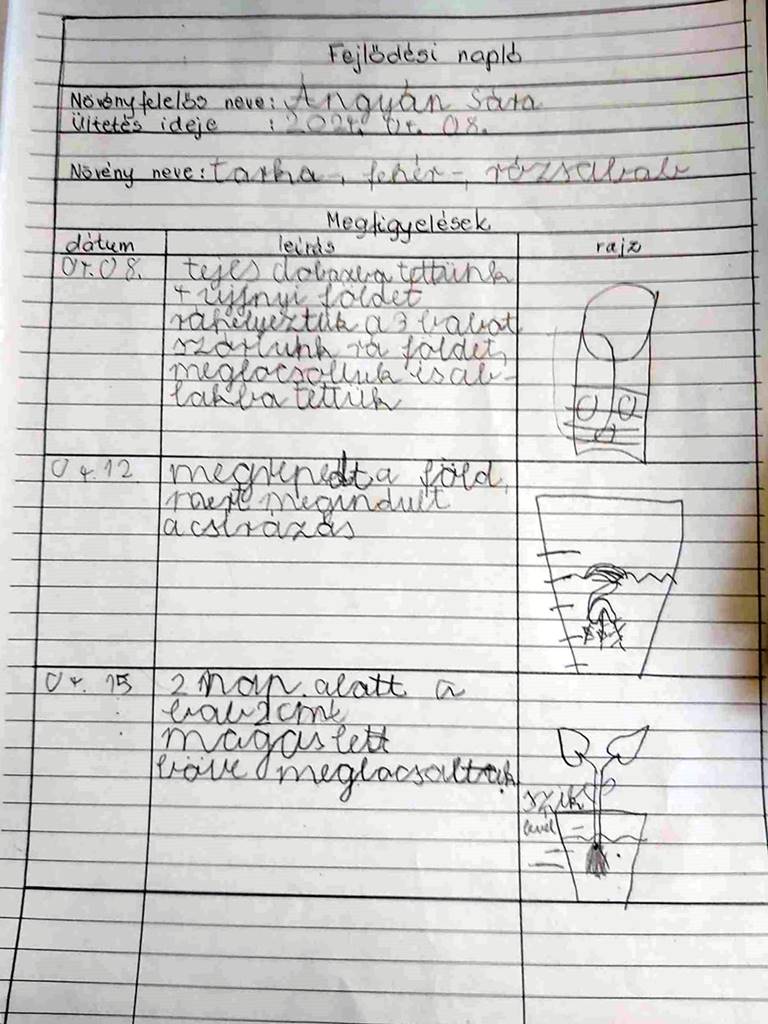 Fejlődési napló
Növényfelelős neve: Angyán Sára
Ültetés ideje : 2024. 04. 08.
Növény neve: tarka-, fehér-, rózsabab
Megfigyelések
dátum leírás rajz
04.08. tejes dobozba tettünk
4 ujjnyi földet
ráhelyeztük a 3 babot
szórtunk rá földet,
meglocsoltuk és ab-
lakba tettük
04.12 megrepedt a föld,
mert megindult
a csírázás
04. 15 2 nap alatt a
bab 2 cm
magas lett
köve meglocsoltuk
szik
level